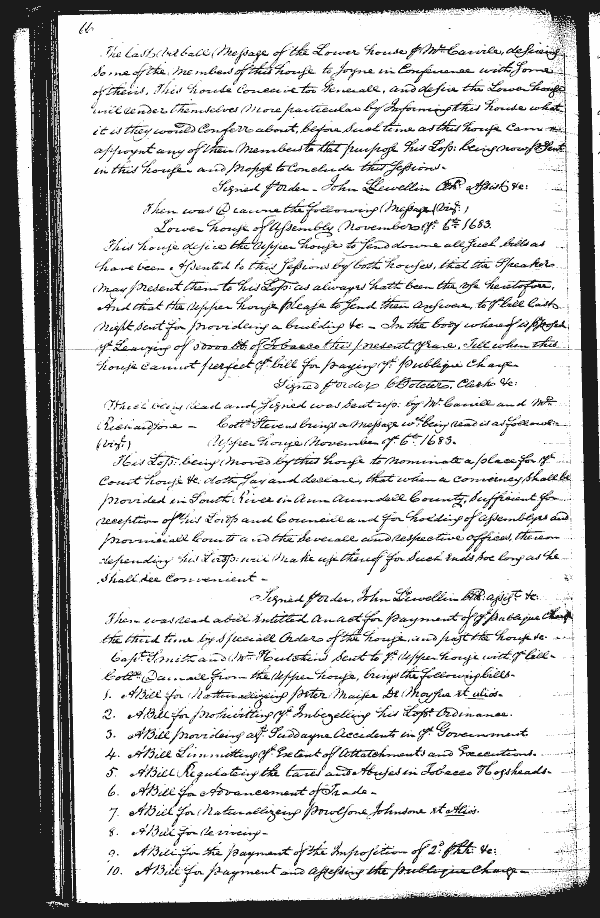 66
The last verball Message of the Lower house p Mr Carvile, desireing
Some of the Members of this house to Joyne in Conference with Some
of theirs. This house Conceive too Generall, and desire the Lower house
will render themselves More particular by Informing this house what
it is they would Conferr about, before Such time as this house Can
appoynt any of their Members to that purpose his Lopp: being now present
in this house and to Conclude this Sessions.
Signed p order - John Llewellin Clk: assist &c:
Then was Drawne the following Message (Vizt:)
Lower house of Assembly November ye 6th 1683
This house desire the upper house to Send downe all Such bills as
have been Assented to this Sessions by both houses, that the Speaker
may present them to his Lopp: as always hath been the use heretofore,
And that the upper house please to Send their answear, to ye bill last
night Sent for providing a building &c - In the body whereof is
ye Leavying of of Tobacco this present yeare, Till when this
house cannot perfect ye bill for paying ye publique Charge
Signed p order Clark &c:
Which being read and Signed was Sent up: by Mr Carvill and Mr
Richardsone - Collo Stevens brings a Message wch being read is as follows
(Vizt:) Upper house November ye 6th 1683.
His Lopp: being Moved by this house to nominate a place for ye
Court house &c doth Say and declare, that when a conveniency Shall be
provided in South River in Ann Arundell County, Sufficient for
reception of his Lopp and Councill and for holding of assemblyes and
provinciall Courts and the Severall and respective offices, thereon
depending his Lopp: will Make use thereof for Such Ends Soe long as he
Shall See Convenient -
Signed p order, John Llewellin Clk: assist &c.
Then was read a bill Intitled An act for payment of ye publique Charge
the third time by Speciall Order of the house, and past the house &c
Capt Smith and Mr Sent to ye upper house with ye bill -
Collo Darnall from the upper house, brings the following bills -
1. A Bill for Naturallizing peter et alios
2. A Bill for prohibitting ye Imbezelling his Lopps Ordinance.
3. A Bill Providing agt Suddayne Accidents in ye Government
4. A Bill Limmitting ye Extent of Attatchments and Executions.
5. A Bill Regulateing the tares and Abuses in Tobacco Hogsheads -
6. A Bill for Advancement of Trade -
7. A Bill for Naturallizing Johnsone et Alios
8. A Bill for Reviving -
9. A Bill for the payment of the Imposition of 2s &c:
10. A Bill for payment and assessing the publique Charge